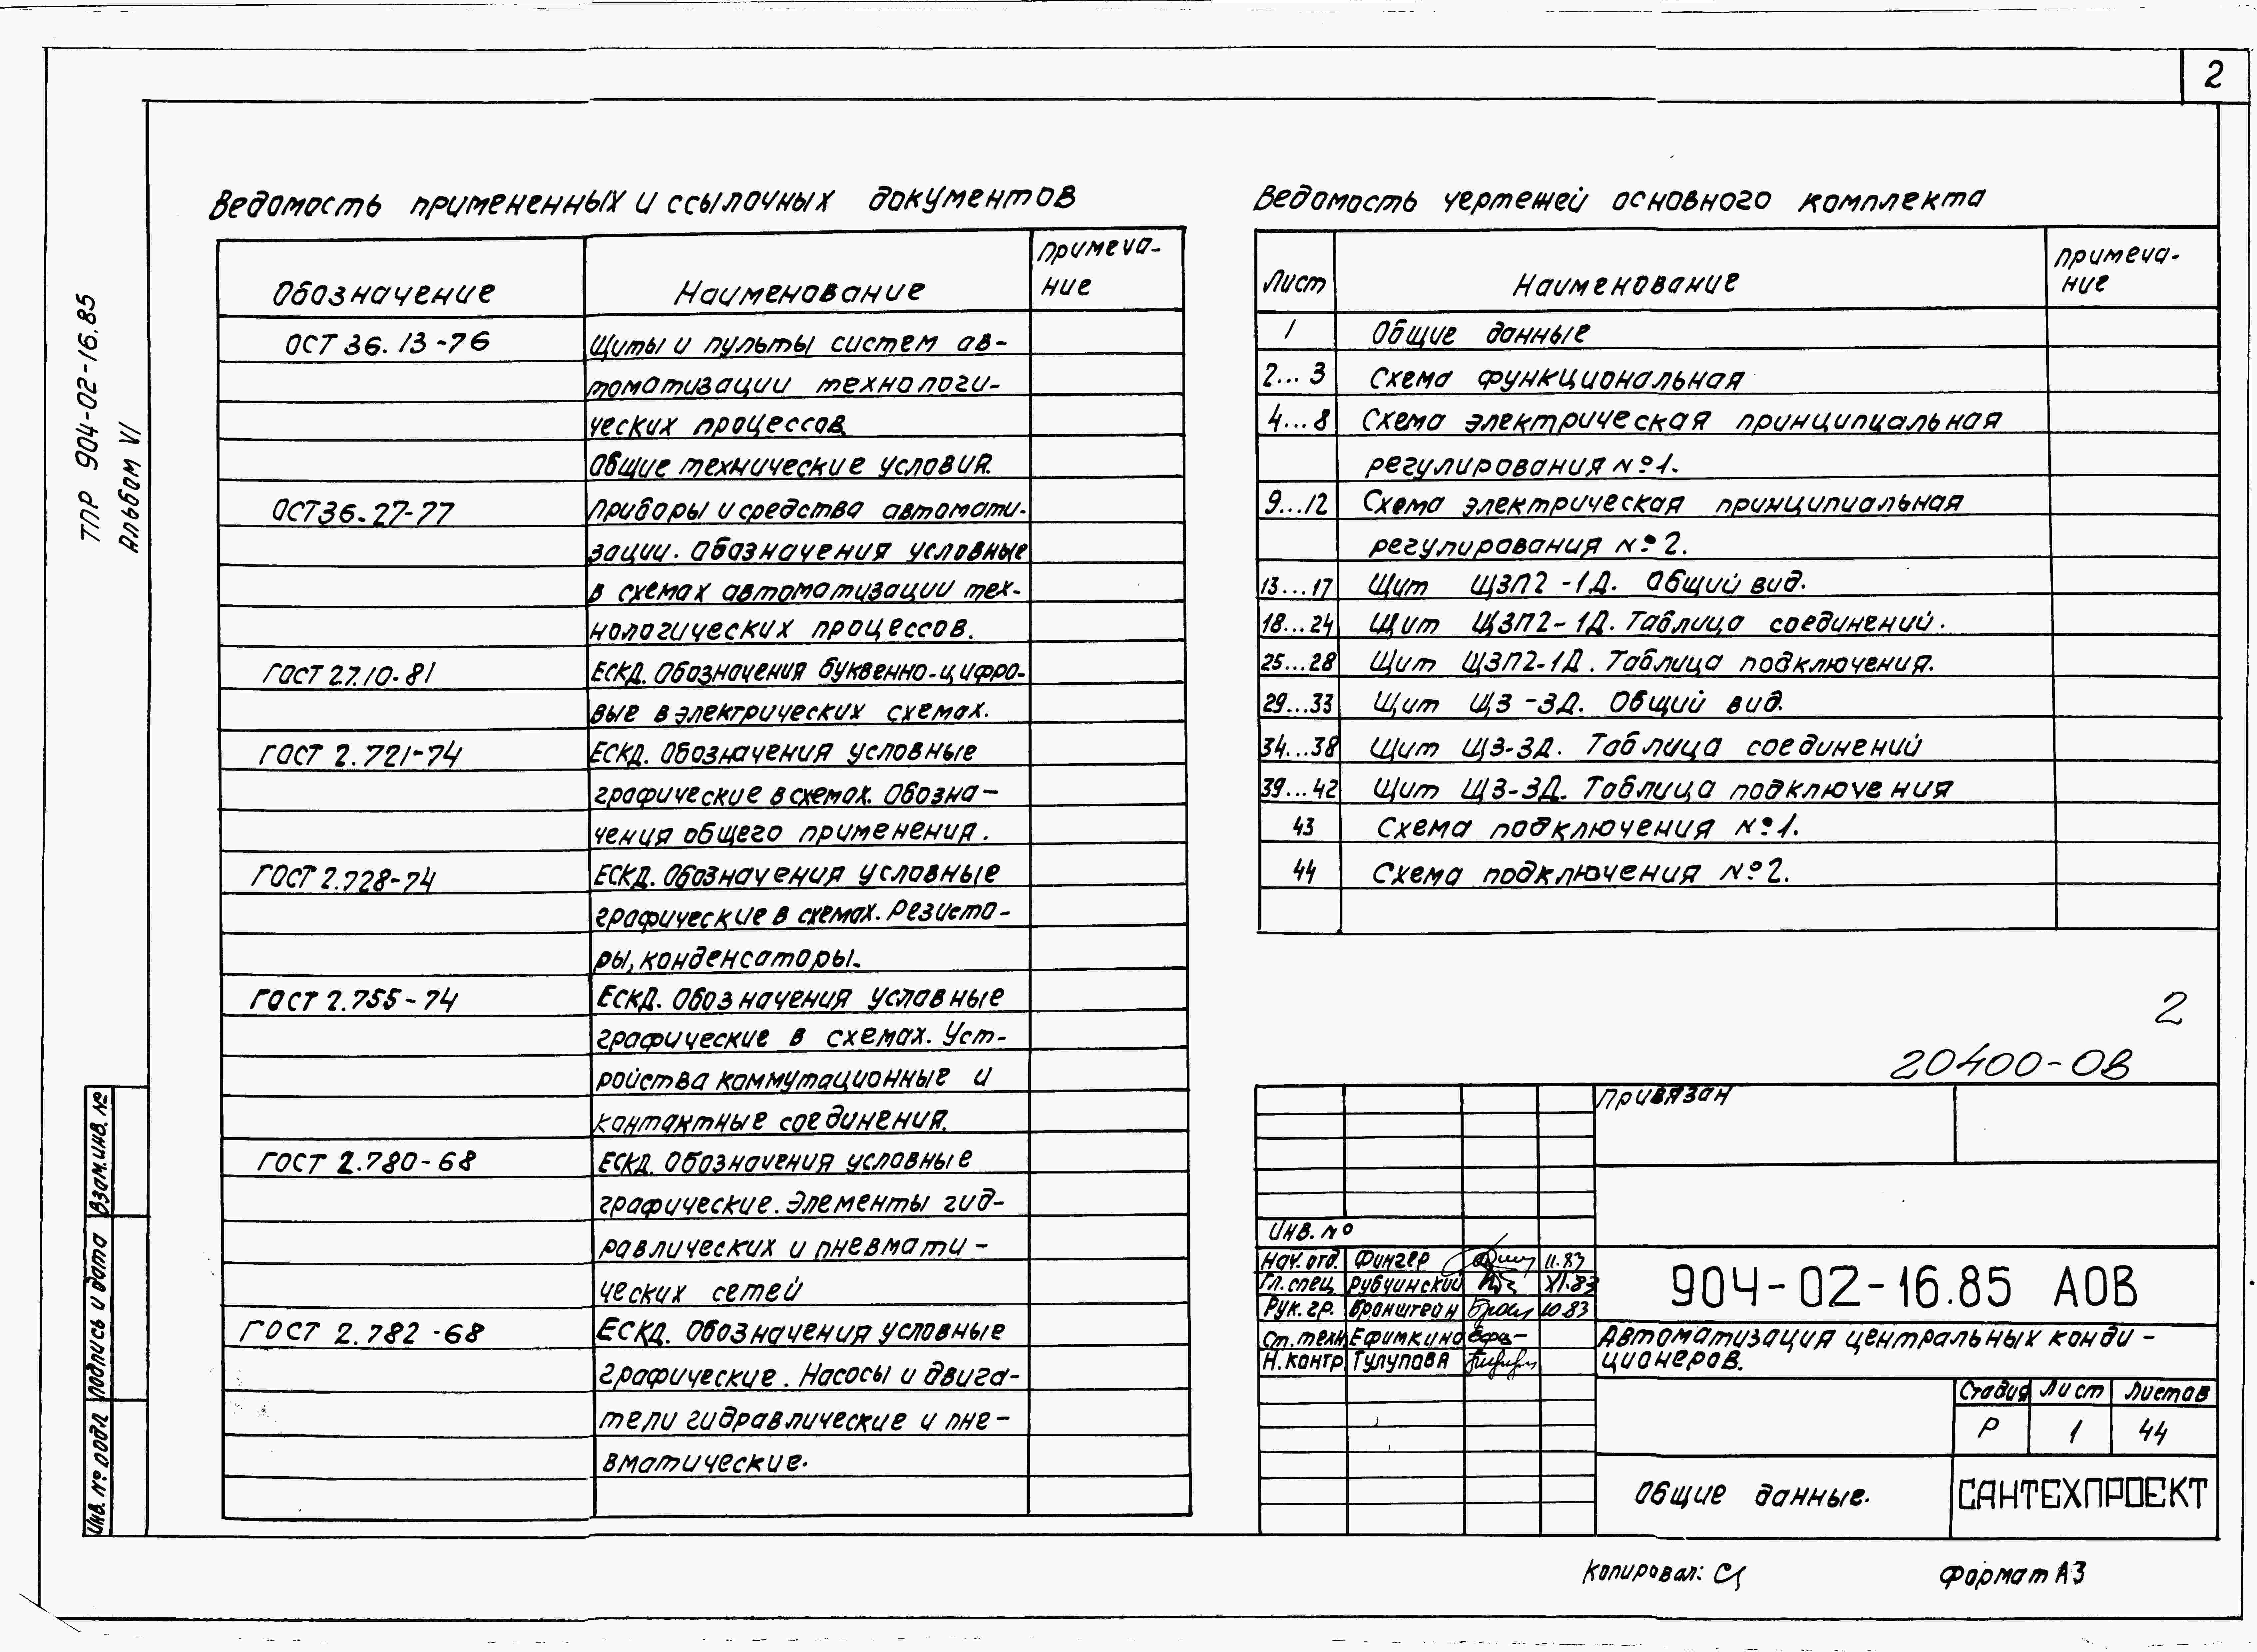 2
ТПР 904-02-16.85
Альбом VI
Ведомость примененных и ссылочных документов
Обозначение Наименование Примеча-
ние
ОСТ 36.13-76 Щиты и пульты систем ав-
томатизации технологи-
ческих процессов
Общие технические условия.
ОСТ 36.27-77 Приборы и средства автомати-
зации. Обозначения условные
в схемах автоматизации тех-
нологических процессов.
ГОСТ 2.7.10-81 ЕСКД. Обозначения буквенно-цифро-
вые в электрических схемах.
ГОСТ 2.721-74 ЕСКД. Обозначения условные
графические в схемах. Обозна-
чения общего применения.
ГОСТ 2.728-74 ЕСКД. Обозначения условные
графические в схемах. Резисто-
ры, конденсаторы.
ГОСТ 2.755-74 ЕСКД. Обозначения условные
графические в схемах. Уст-
ройства коммутационные и
контактные соединения.
ГОСТ 2.780-68 ЕСКД. Обозначения условные
графические. Элементы гид-
равлических и пневмати-
ческих сетей
ГОСТ 2.782-68 ЕСКД. Обозначения условные
графические. Насосы и двига-
тели гидравлические и пне-
вматические.
Ведомость чертежей основного комплекта
Лист Наименование Примеча-
ние
1 Общие данные
2...3 Схема функциональная
4...8 Схема электрическая принципиальная
регулирования №1.
9...12 Схема электрическая принципиальная
регулирования №2.
13...17 Щит ЩЗП2-1Д. Общий вид.
18...24 Щит ЩЗП2-1Д. Таблица соединений.
25...28 Щит ЩЗП2-1Д. Таблица подключения.
29...33 Щит ЩЗ-3Д. Общий вид.
34...38 Щит ЩЗ-3Д. Таблица соединений
39...42 Щит ЩЗ-3Д. Таблица подключения
43 Схема подключения №1.
44 Схема подключения №2.
2
20400-08
Привязан
Инв. №
Нач. отд. Фингер 11.83
Гл. спец. Рубчинский XI.83
Рук. гр. Бронштейн 10.83
Ст. техн. Ефимкина
Н. контр. Тулупова
904-02-16.85 АОВ
Автоматизация центральных конди-
ционеров.
Стадия Лист Листов
Р 1 44
Общие данные.
САНТЕХПРОЕКТ
Взам. инв. №
Подпись и дата
Инв. № подл
Копировал:
Формат А3